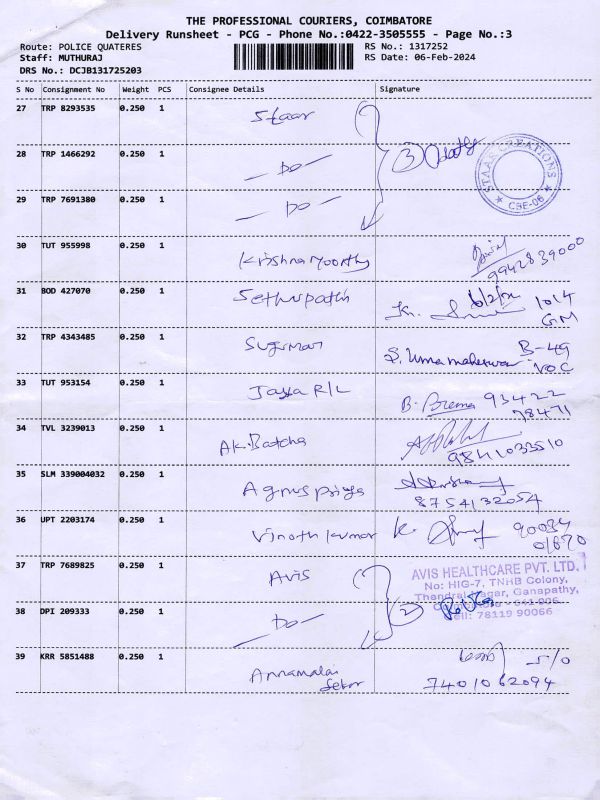 THE PROFESSIONAL COURIERS, COIMBATORE
Delivery Runsheet - PCG - Phone No.:0422-3505555 - Page No.:3
Route: POLICE QUATERES RS No.: 1317252
Staff: MUTHURAJ RS Date: 06-Feb-2024
DRS No.: DCJB131725203
S No Consignment No Weight PCS Consignee Details Signature
27 TRP 8293535 0.250 1 Staar
28 TRP 1466292 0.250 1 - Do - 3
STAAN CREATIONS
CBE-06
29 TRP 7691380 0.250 1 - Do -
30 TUT 955998 0.250 1 Krishna Moorthy
9942839000
31 BOD 427070 0.250 1 Sethupathi 6/2/24 1014
GM
32 TRP 4343485 0.250 1 Sugumar S. Umamaheswari B-49
VOC
33 TUT 953154 0.250 1 Jaya R/L B. Prema 93422
78471
34 TVL 3239013 0.250 1 A.K. Batcha
9841033510
35 SLM 339004032 0.250 1 Agnus priya
8754132054
36 UPT 2203174 0.250 1 Vinoth kumar K.
37 TRP 7689825 0.250 1 Avis
AVIS HEALTHCARE PVT. LTD.
No: HIG-7, TNHB Colony,
Thendral Nagar, Ganapathy,
Cell: 78119 90066
38 DPI 209333 0.250 1 - Do - 2
39 KRR 5851488 0.250 1 Annamalai S/O
7401062094